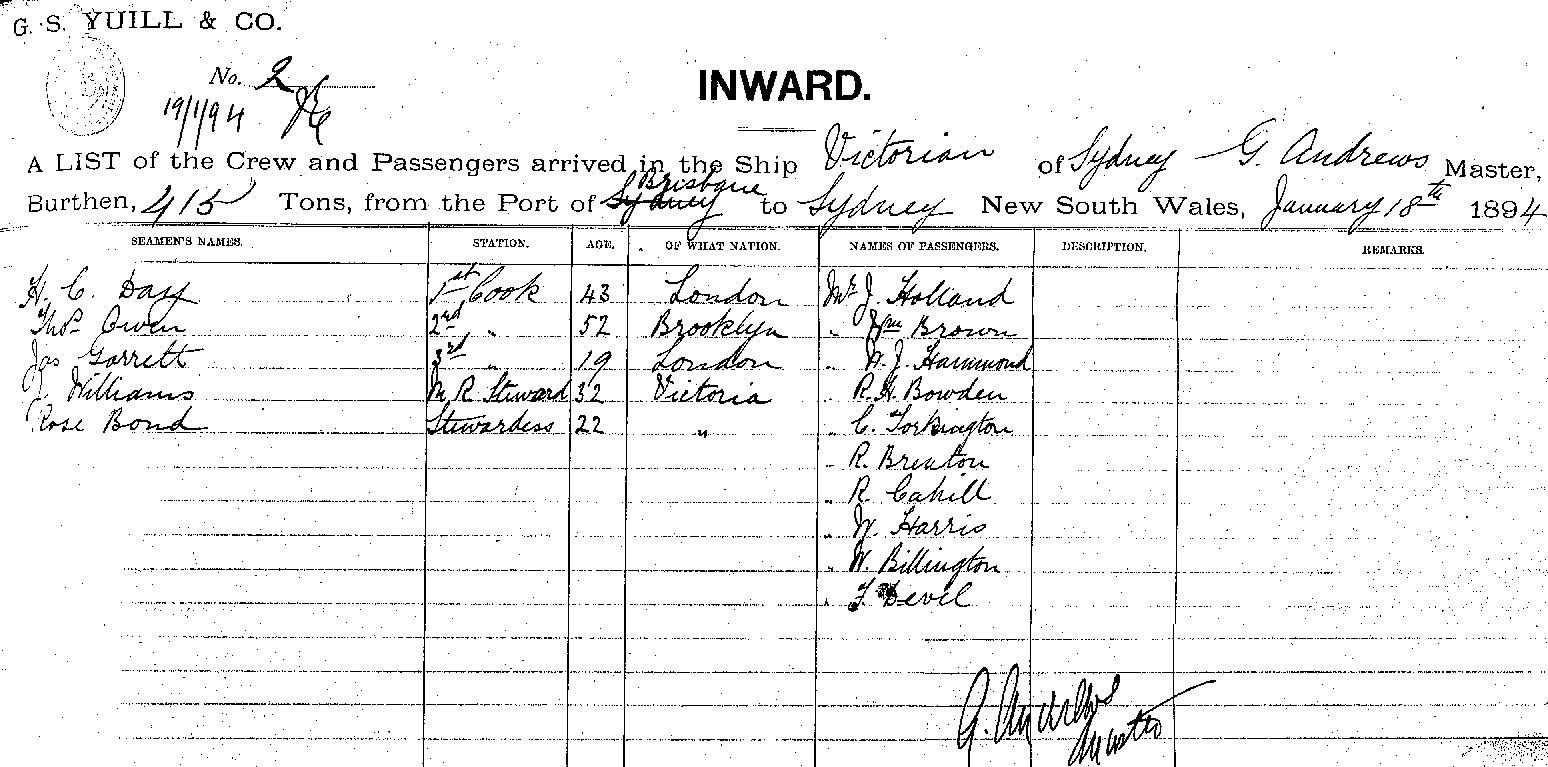 G. S. YUILL & CO.
No. 2
19/1/94
INWARD.
A LIST of the Crew and Passengers arrived in the Ship Victorian of Sydney G. Andrews Master,
Burthen, 415 Tons, from the Port of Sydney Brisbane to Sydney New South Wales, January 18th 1894
SEAMEN'S NAMES. STATION. AGE. OF WHAT NATION. NAMES OF PASSENGERS. DESCRIPTION. REMARKS.
H. C. Dass 1st Cook 43 London Mr J. Holland
Thos Owen 2nd " 52 Brooklyn " Jno Brown
Jas Garrett 3rd " 19 London " W. J. Hammond
J. Williams M. R. Steward 32 Victoria " R. H. Bowden
Rose Bond Stewardess 22 " " C. Torkington
" R. Brenton
" R. Cahill
" W. Harris
" W. Billington
" F. Devel
G. Andrews
Master